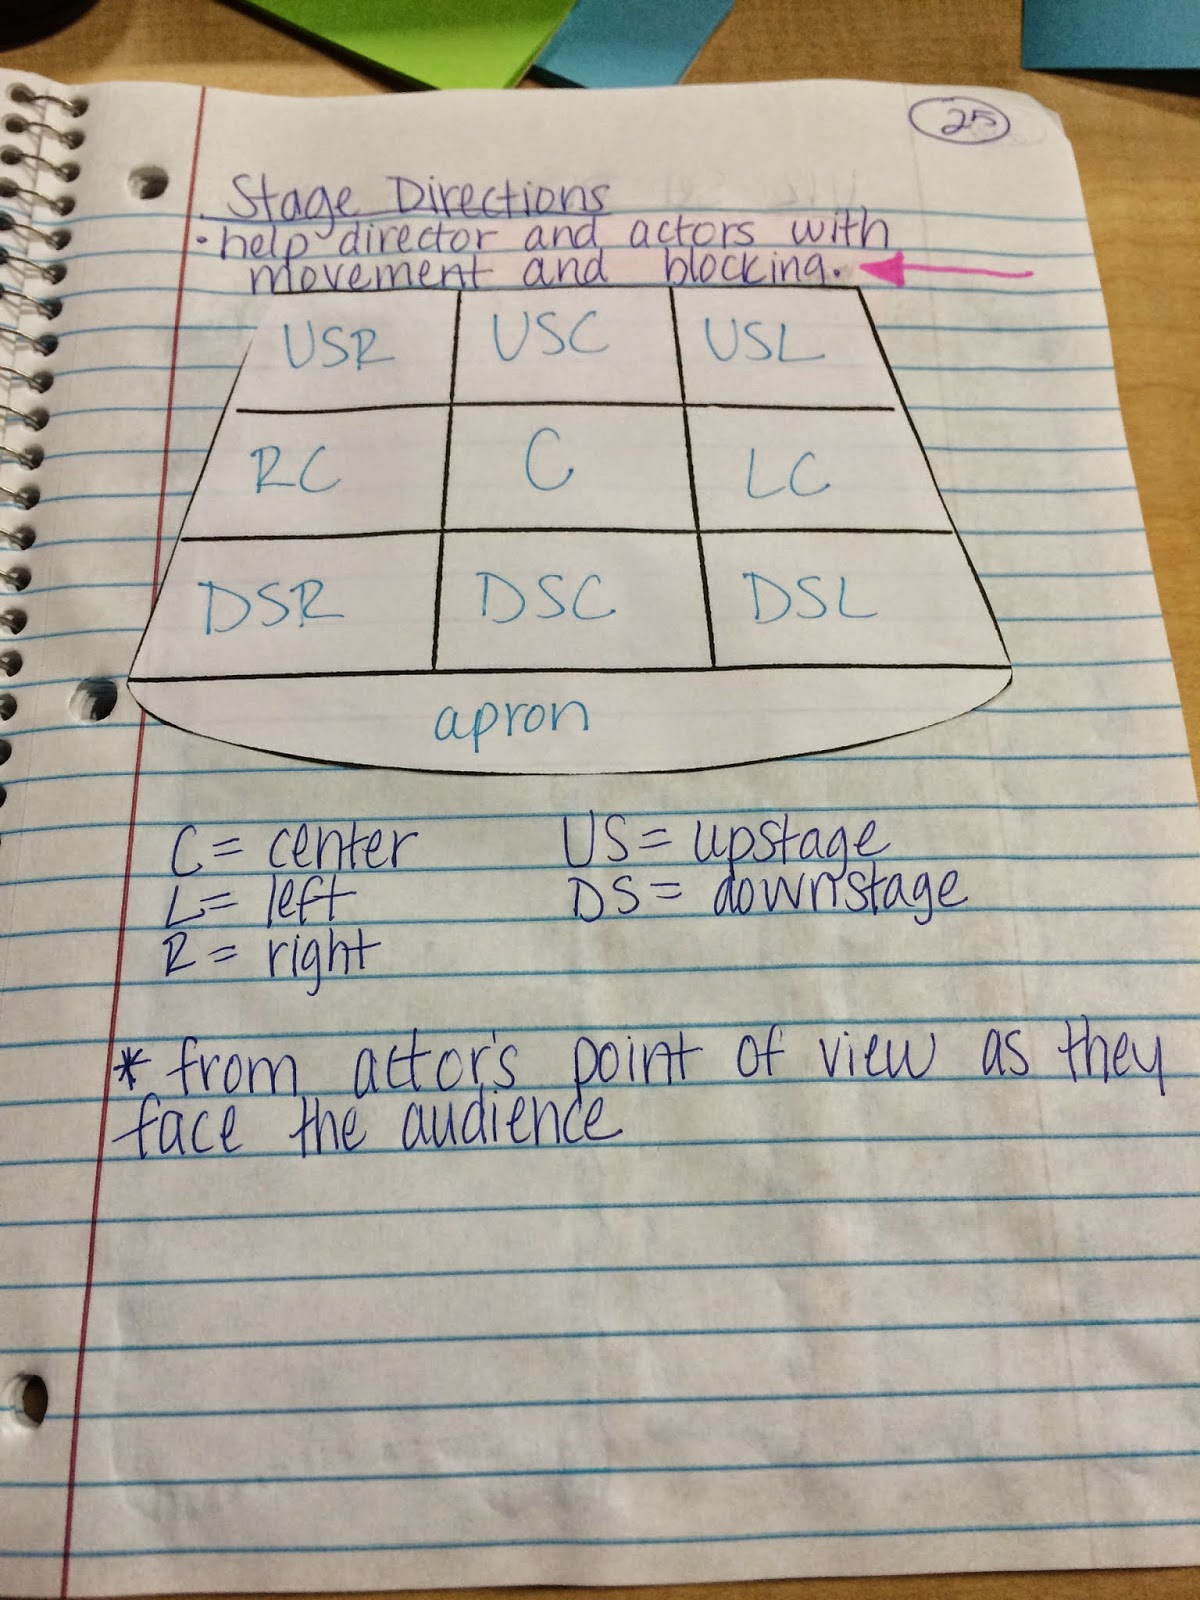 25
Stage Directions
• help director and actors with
movement and blocking.
USR USC USL
RC C LC
DSR DSC DSL
apron
C = center US = upstage
L = left DS = downstage
R = right
* from actor's point of view as they
face the audience